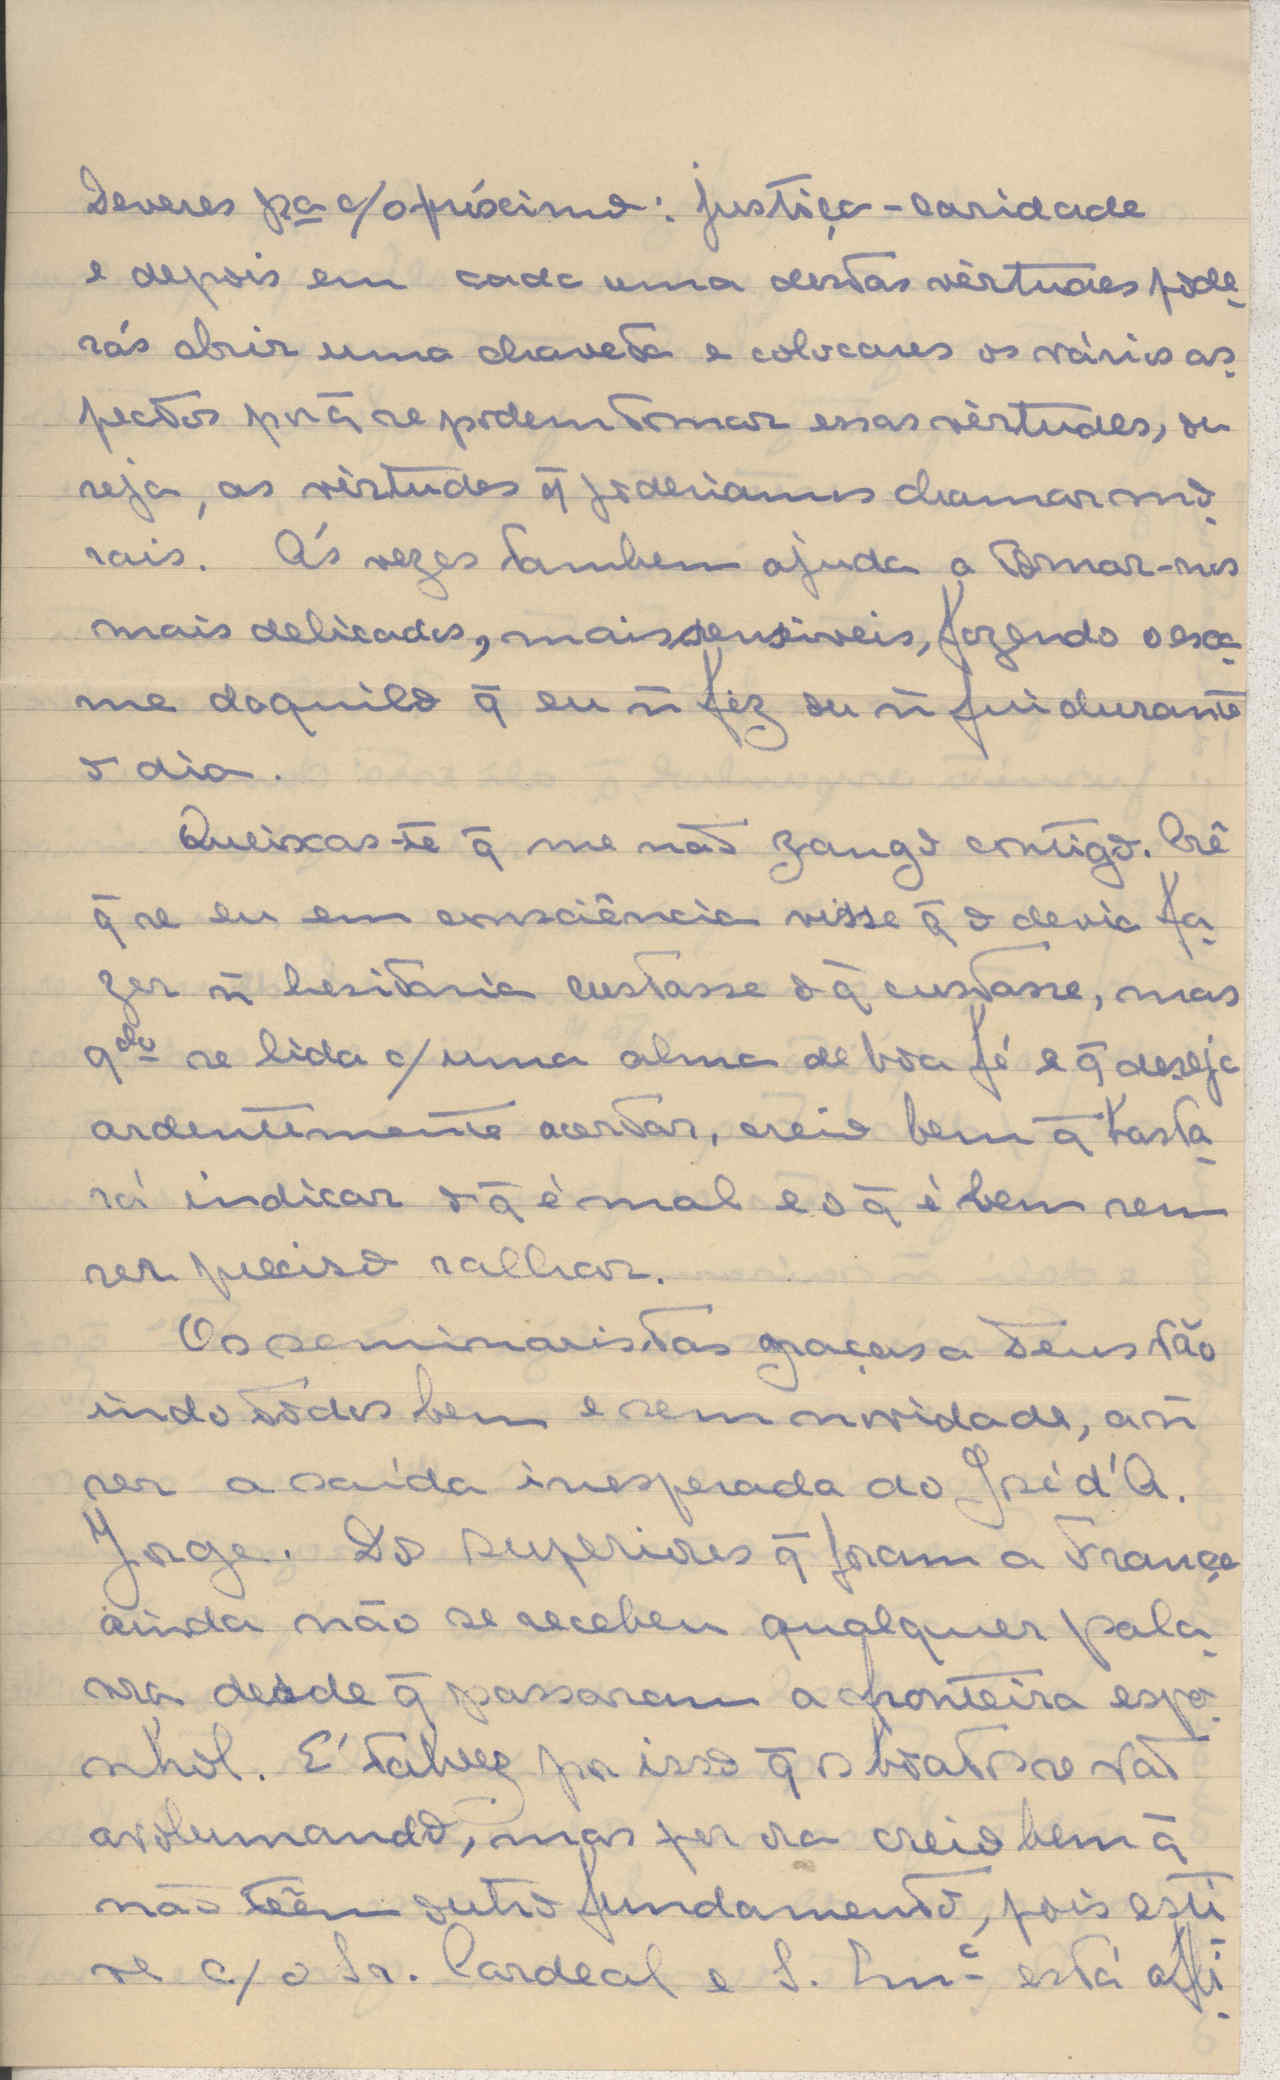 Deveres pa c/o próximo: justiça - caridade
e depois em cada uma destas vèrtudes pode-
rás abrir uma chaveta e colocares os vários as-
pectos por q̄ se podem tomar essas vèrtudes, ou
seja, as vèrtudes q̄ poderiamos chamar mo-
rais. Ás vezes tambem ajuda a tornar-nos
mais delicados, mais sensiveis, fazendo o exa-
me daquilo q̄ eu ñ fiz ou ñ fui durante
o dia.
Queixas-te q̄ me não zango contigo. Crê
q̄ se eu em consciência visse q̄ o devia fa-
zer ñ hesitaria custasse o q̄ custasse, mas
qdo se lida c/ uma alma de boa fé e q̄ deseja
ardentemente acertar, creio bem q̄ basta-
rá indicar o q̄ é mal e o q̄ é bem sem
ser preciso ralhar.
Os seminaristas graças a Deus vão
indo todos bem e sem novidade, a ñ
ser a saída inesperada do José d'A.
Jorge. Dos superiores q̄ foram a França
ainda não se recebeu qualquer pala-
vra desde q̄ passaram a fronteira espa-
nhol. E' talvez por isso q̄ os boatos se vão
avolumando, mas por ora creio bem q̄
não teêm outro fundamento, pois esti
ve c/o Sr. Cardeal e S. Emª está opti-